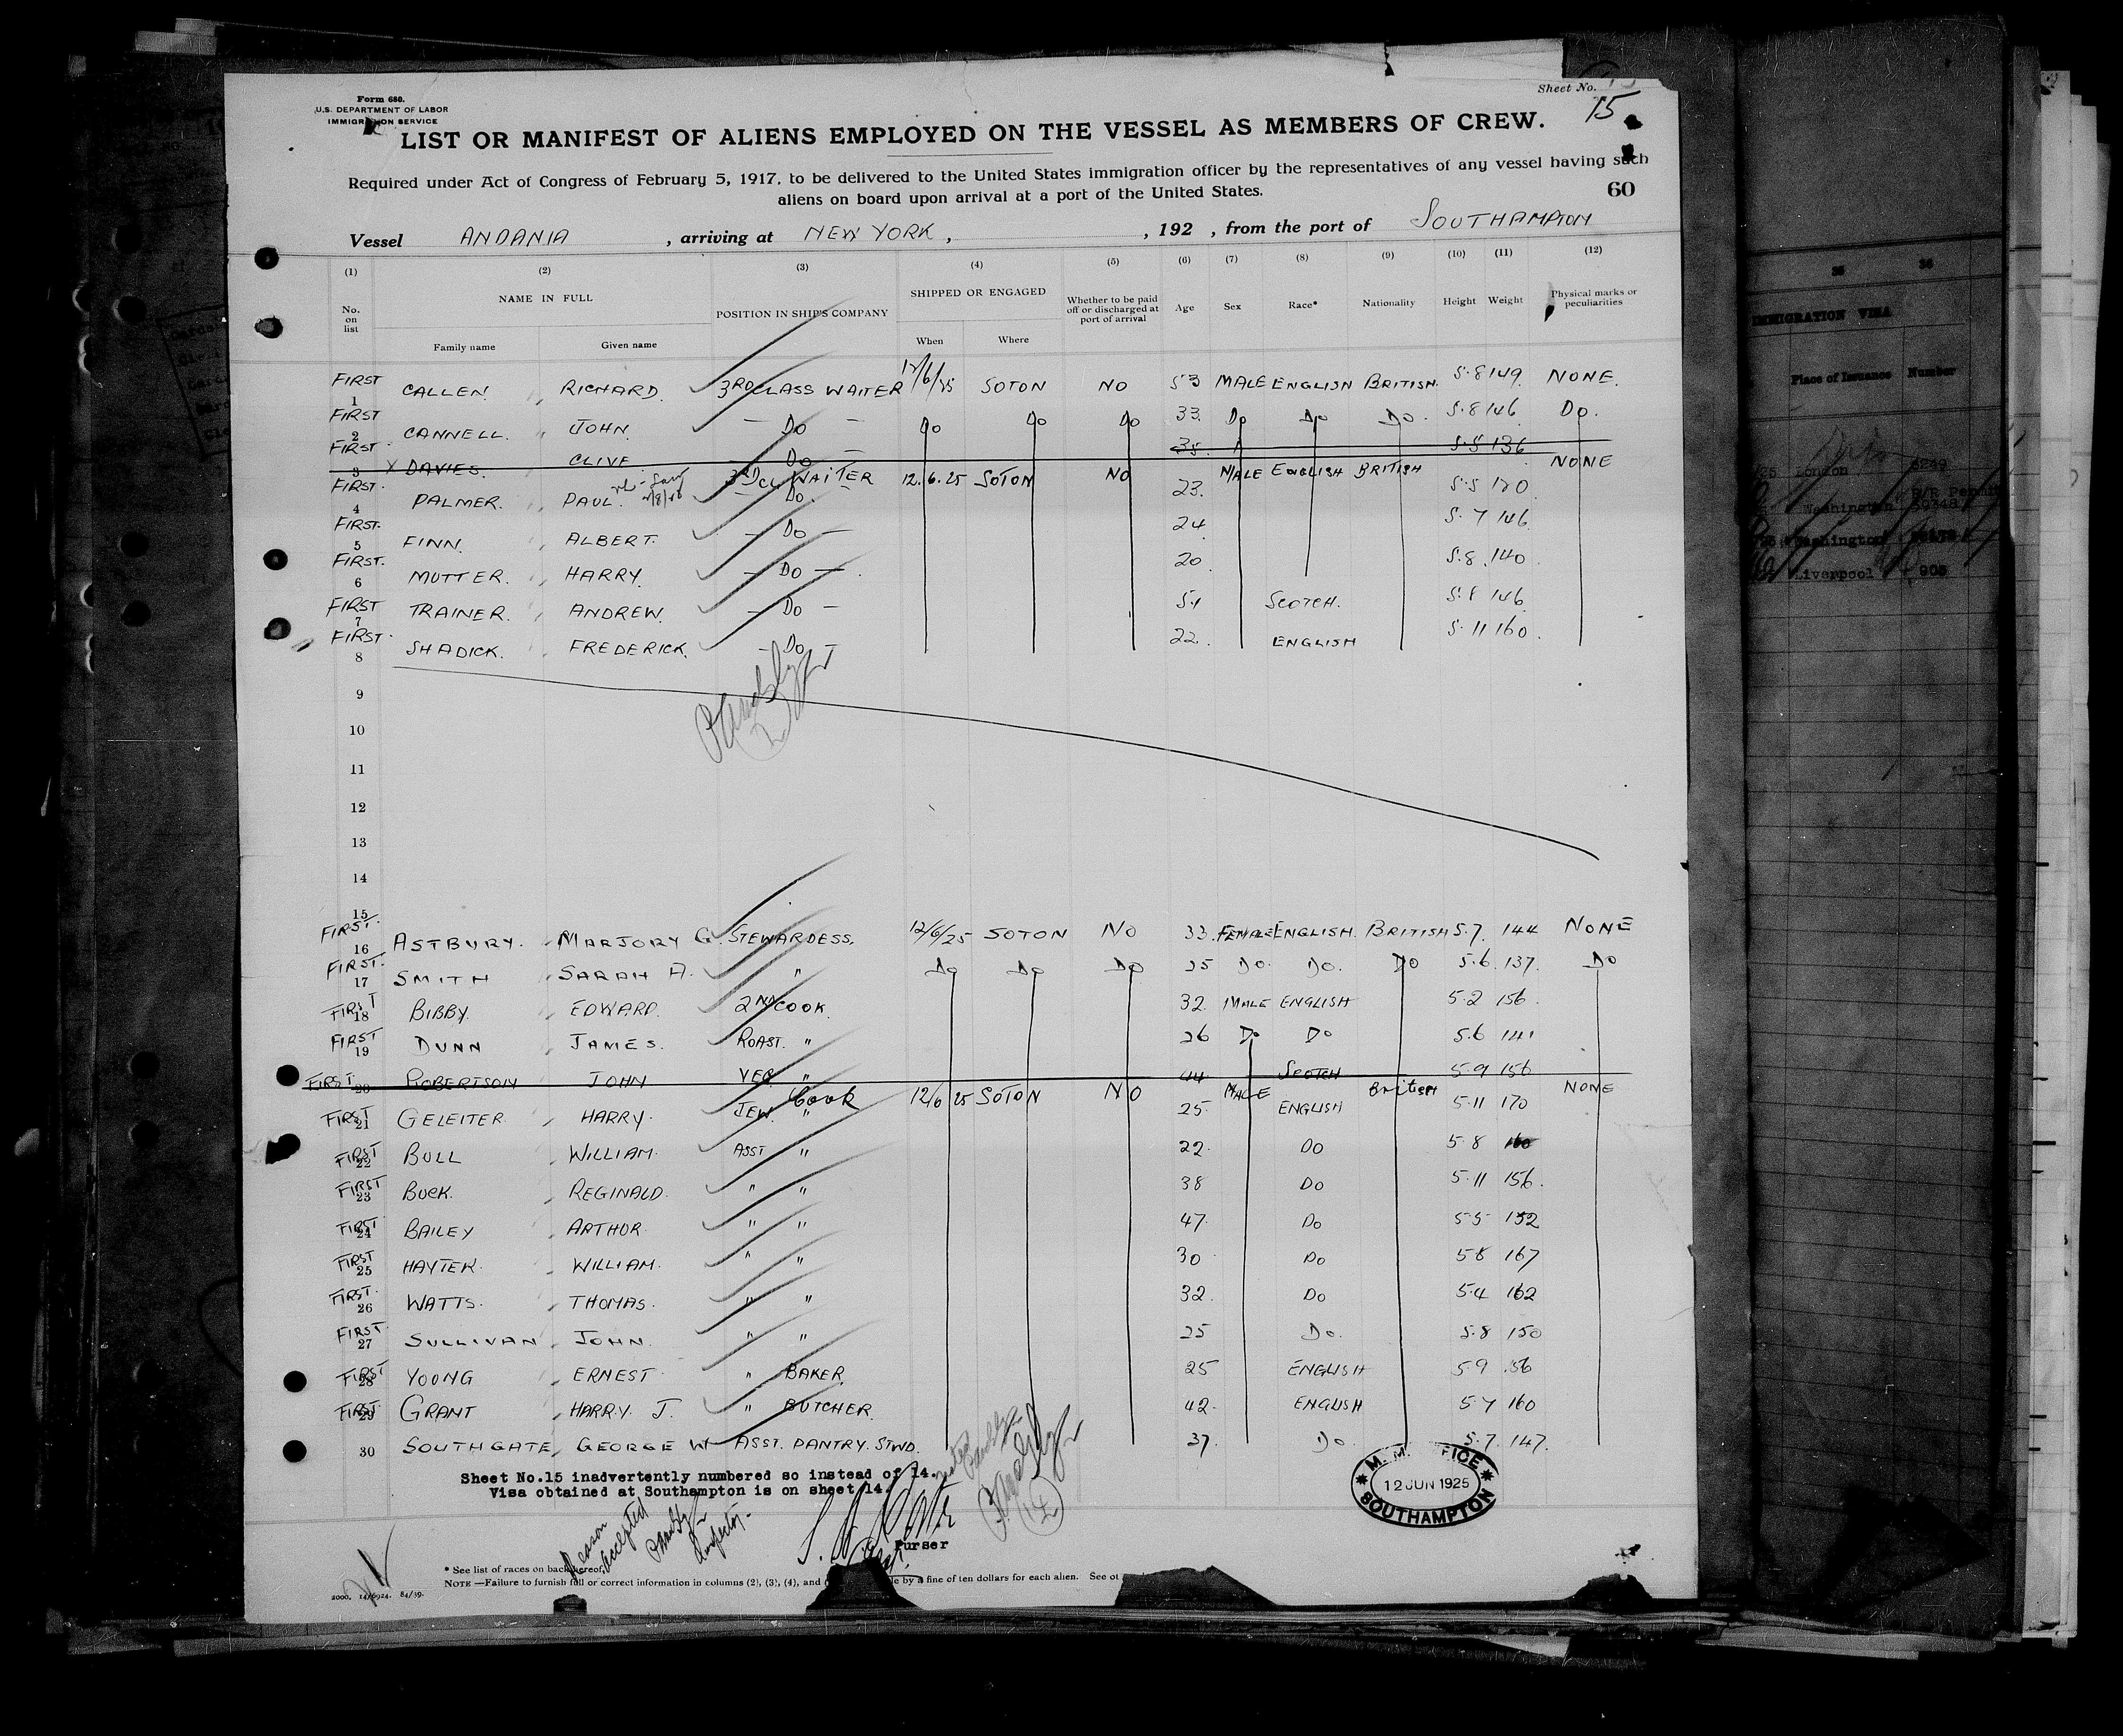 Form 680.
U.S. DEPARTMENT OF LABOR
IMMIGRATION SERVICE
Sheet No. 15
LIST OR MANIFEST OF ALIENS EMPLOYED ON THE VESSEL AS MEMBERS OF CREW.
Required under Act of Congress of February 5, 1917, to be delivered to the United States immigration officer by the representatives of any vessel having such
aliens on board upon arrival at a port of the United States.
60
Vessel ANDANIA , arriving at NEW YORK , , 192 , from the port of SOUTHAMPTON
(1) (2) (3) (4) (5) (6) (7) (8) (9) (10) (11) (12)
No. on list NAME IN FULL POSITION IN SHIP'S COMPANY SHIPPED OR ENGAGED Whether to be paid off or discharged at port of arrival Age Sex Race* Nationality Height Weight Physical marks or peculiarities
Family name Given name When Where
FIRST 1 CALLEN RICHARD 3RD CLASS WAITER 12/6/25 SOTON NO 53 MALE ENGLISH BRITISH 5.8 149 NONE.
FIRST 2 CANNELL JOHN - Do - Do Do Do 33 Do Do Do 5.8 146 Do.
FIRST 3 X DAVIES CLIVE - Do - 35 5.5 136
FIRST 4 PALMER PAUL 3RD CL WAITER 12.6.25 SOTON NO 23 MALE ENGLISH BRITISH 5.5 120 NONE
- Do -
FIRST 5 FINN ALBERT - Do - 24 5.7 146
FIRST 6 MUTTER HARRY - Do - 20 5.8 140
FIRST 7 TRAINER ANDREW - Do - 51 SCOTCH. 5.8 146
FIRST 8 SHADICK FREDERICK - Do - 22 ENGLISH 5.11 160
9
10
11
12
13
14
15
FIRST 16 ASTBURY MARJORY G. STEWARDESS. 12/6/25 SOTON NO 33 FEMALE ENGLISH BRITISH 5.7 144 NONE
FIRST 17 SMITH SARAH A. " Do Do Do 25 Do Do. Do 5.6 137 Do
FIRST 18 BIBBY EDWARD 2ND COOK 32 MALE ENGLISH 5.2 156
FIRST 19 DUNN JAMES ROAST. " 26 Do Do 5.6 141
FIRST 20 ROBERTSON JOHN VEG " 44 SCOTCH 5.9 156
FIRST 21 GELEITER HARRY JEW. Cook 12/6/25 SOTON NO 25 MALE ENGLISH British 5.11 170 NONE
FIRST 22 BULL WILLIAM ASST " 22 Do 5.8 160
FIRST 23 BUCK REGINALD " " 38 Do 5.11 156
FIRST 24 BAILEY ARTHOR " " 47 Do 5.5 132
FIRST 25 HAYTER WILLIAM " " 30 Do 5.8 167
FIRST 26 WATTS THOMAS " " 32 Do 5.4 162
FIRST 27 SULLIVAN JOHN " " 25 Do. 5.8 150
FIRST 28 YOUNG ERNEST " BAKER 25 ENGLISH 5.9 156
FIRST 29 GRANT HARRY J. " BUTCHER 42 ENGLISH 5.7 160
30 SOUTHGATE GEORGE W ASST. PANTRY. STWD. 37 Do 5.7 147
Sheet No.15 inadvertently numbered so instead of 14.
Visa obtained at Southampton is on sheet 14.
Purser
Reason
accepted
Inspector.
SOUTHAMPTON
12 JUN 1925
* See list of races on back hereof.
NOTE.—Failure to furnish full or correct information in columns (2), (3), (4), and by a fine of ten dollars for each alien. See
2000. 14/6924. 84/39.
35 36
IMMIGRATION VISA
Place of Issuance Number
London 6249
Washington
Washington
Liverpool 905